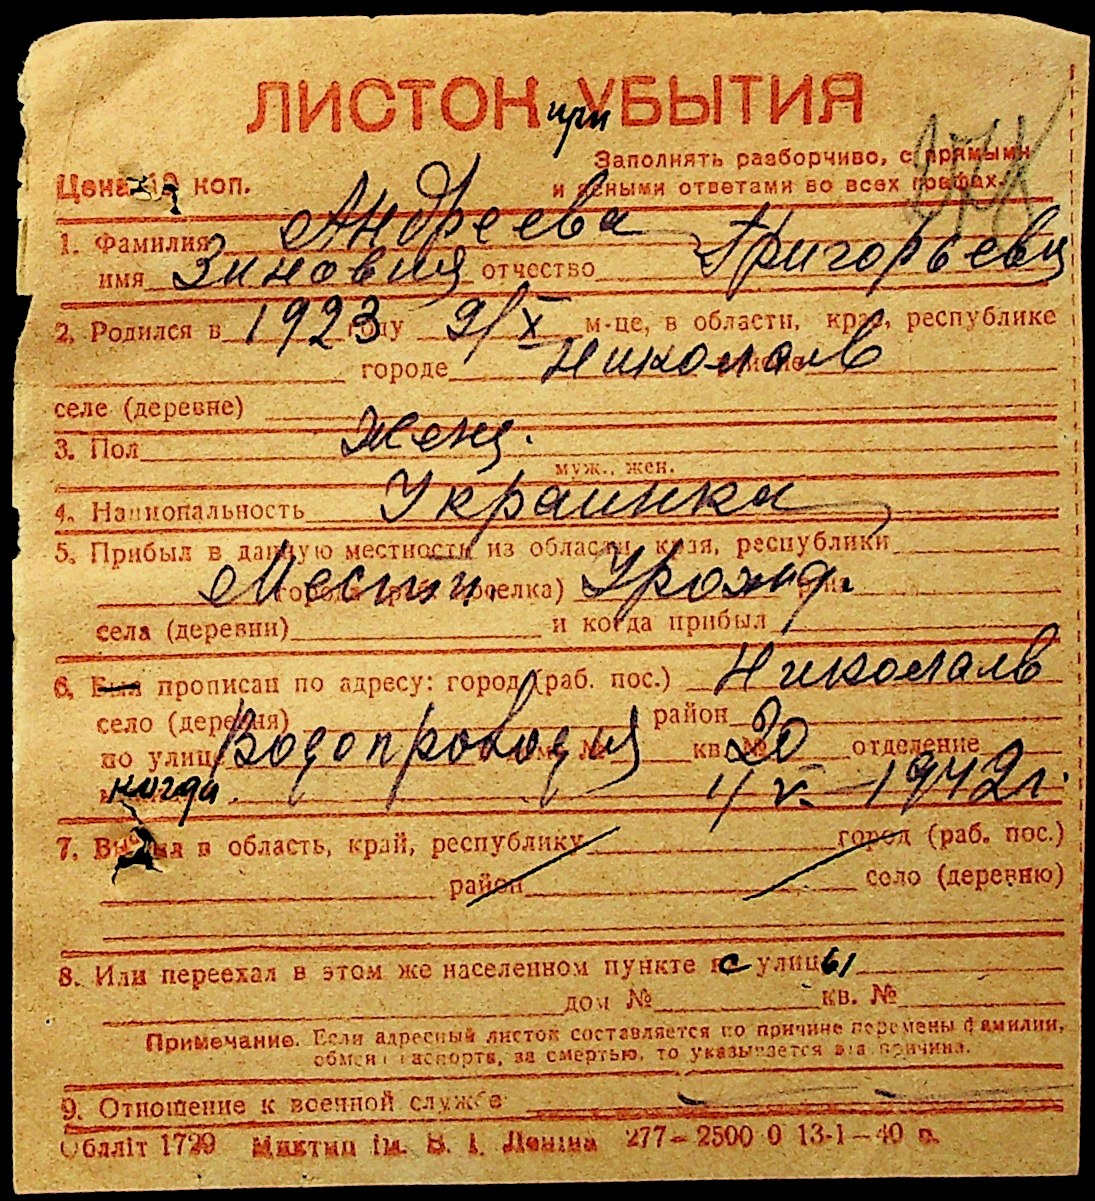 ЛИСТОК при УБЫТИЯ
Заполнять разборчиво, с прямыми
Цена 10 коп. и ясными ответами во всех графах.
1. Фамилия Андреева
имя Зиновия отчество Григорьевна
2. Родился в 1923 году 9/X м-це, в области, крае, республике
городе Николаев
селе (деревне)
3. Пол Женщ.
муж., жен.
4. Национальность Украинка
5. Прибыл в данную местность из области, края, республики
Местн. поселка) Урожд.
села (деревни) и когда прибыл
6. Был прописан по адресу: город (раб. пос.) Николаев
село (деревня) район
по улице Водопроводня кв. № 20 отделение
когда 1/V. – 1942 г.
7. в область, край, республику город (раб. пос.)
район село (деревню)
8. Или переехал в этом же населенном пункте с улицы
дом № кв. №
Примечание. Если адресный листок составляется по причине перемены фамилии,
обмена паспорта, за смертью, то указывается эта причина.
9. Отношение к военной службе
Обллiт 1729 iм. В. I. Ленiна 277–2500 0 13-1–40 в.